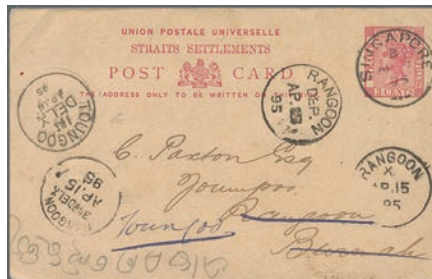 UNION POSTALE UNIVERSELLE
STRAITS SETTLEMENTS
POST CARD
THE ADDRESS ONLY TO BE WRITTEN ON THIS SIDE
SINGAPORE
CENTS
RANGOON
DEP
AP.
95
TOUNGOO
1st
DEL
95
RANGOON
AP.15
95
RANGOON
AP.15
95
C. Paxton Esq
Toungoo
Rangoon
Toungoo
Burmah